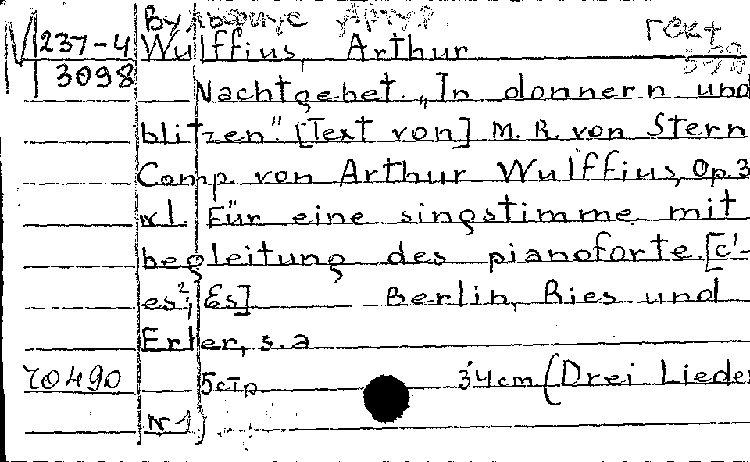 Вульфиус Артур текст
М 237-4 Wulffius, Arthur
3098 Nachtgebet. „In donnern und
blitzen". [Text von] M. R. von Stern
Comp. von Arthur Wulffius, Op. 3
n1. Für eine singstimme mit
begleitung des pianoforte. [c'-
es²; Es] Berlin, Ries und
Erler, s. a
70490 5стр 34cm (Drei Lieder
Nr 1)